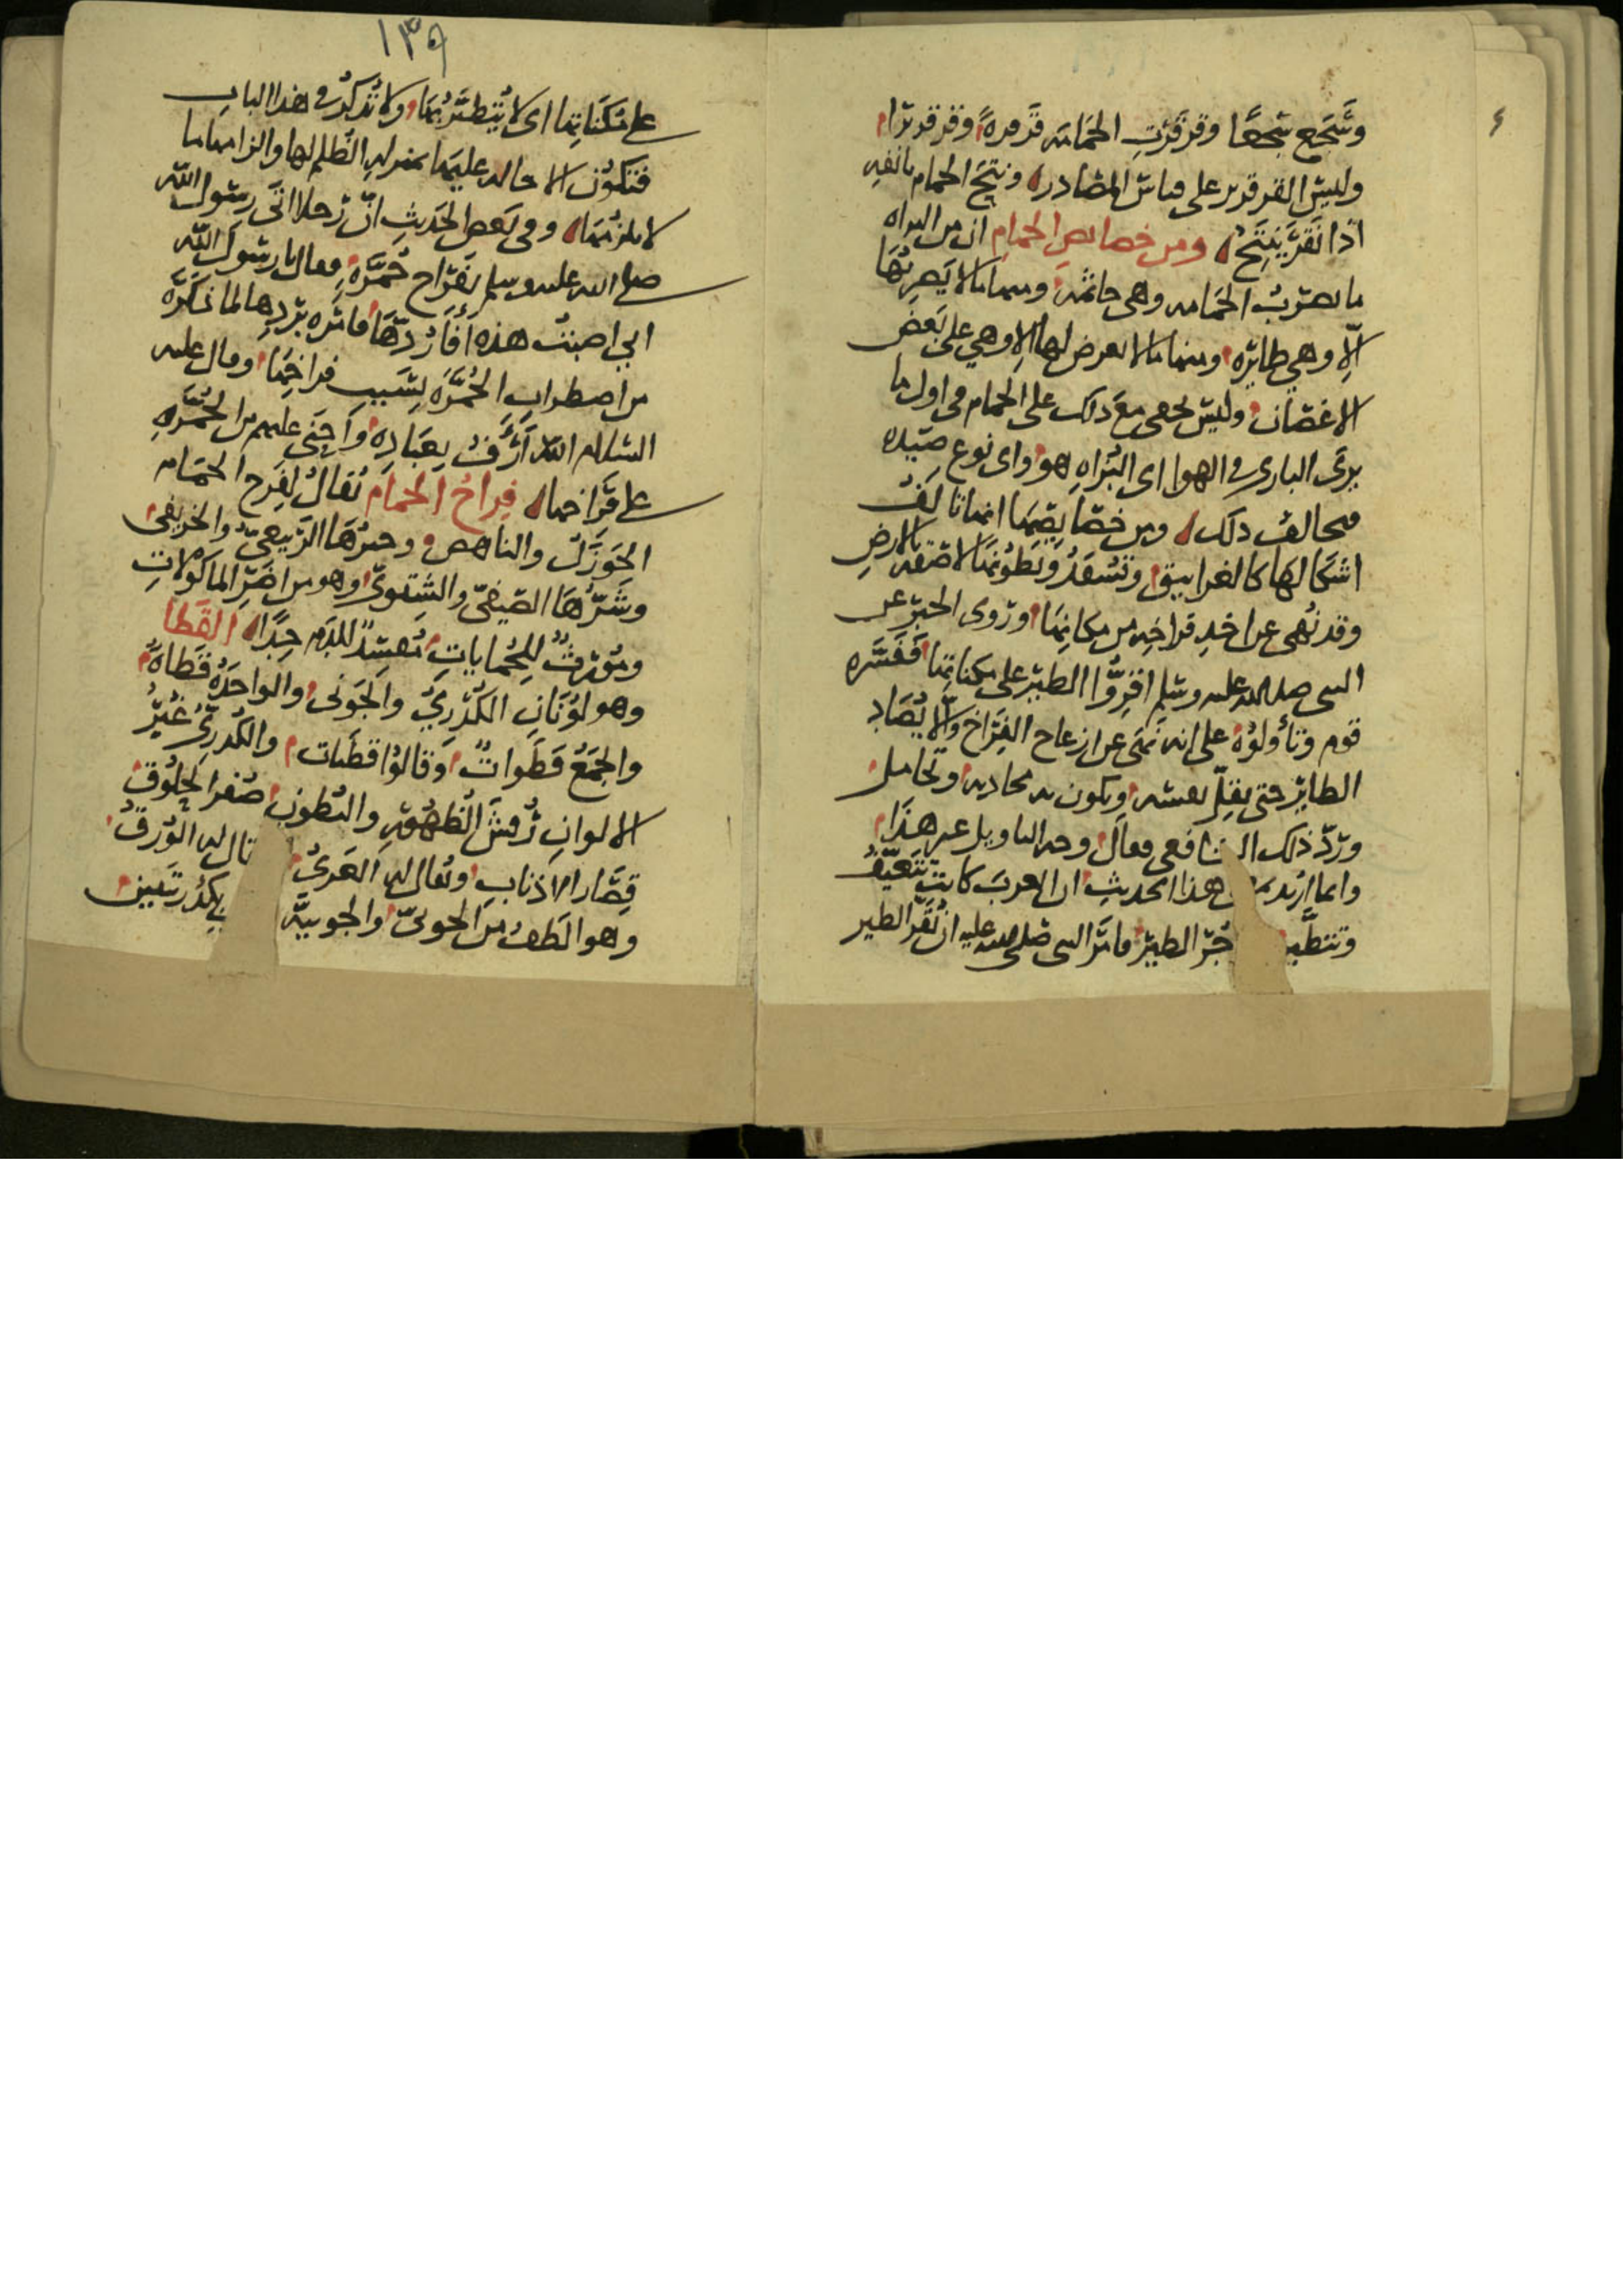 وتسجع سجعًا وقرقرت الحمامه قرقرةً وقرقريرًا
وليس القرقرير على قياس المصادر ونتج الحمام بانفه
اذا نقر ينتج ومن خصايص الحمام ان من البزاه
ما يضرب الحمامه وهي جاثمه ومنها ما لا يضربها
الا وهي طايره ومنها ما لا يعرض لها الا وهي على بعض
الاغصان وليس يخفى مع ذلك على الحمام في اول ما
يرى البازى في الهوا اى البزاه هو واى نوع صيده
فيخالف ذلك ومن خصايصها انها تالف
اشكالها كالغرانيق وتسفد وبطونها لاصقه بالارض
وقد نهى عن اخذ فراخه من مكانها وروى الخبر عن
النبى صلى الله عليه وسلم اقروا الطير على مكناتها ففسره
قوم وتأولوه على انه نهى عن ازعاج الفراخ والا يصاد
الطاير حتى يقل بعشه ويكون به محاديه وتحامل
وردّ ذلك الشافعى وقال وجه التاويل غير هذا
وانما اريد هذا الحديث ان العرب كانت تتعيّف
وتتطير الطير فامر النبى صلى الله عليه ان تقر الطير
١٣٩
على مكناتها اى لا يتطير بها ولا تذكر فى هذا الباب
فتكون الاحاله عليها بمنزله الظلم لها والزامها ما
لا يلزمها وفى بعض الحديث انّ رجلا اتى رسول الله
صلى الله عليه وسلم بفراخ حُمّره فقال يا رسول الله
انى اصبت هذه أفأردّها فامره بردها لما ذكره
من اضطراب الحمّره بسبب فراخها وقال عليه
السلام الله أرأف بعباده واحنى عليهم من الحمّره
على فراخها فراخ الحمام يقال لفرخ الحمامه
الجوزل والناهض وخيرها الربيعىّ والخريفى
وشرّها الصيفىّ والشتوىّ وهو من اضرّ الماكولات
ومورث للحمايات مفسدٌ للدم جدًا القطا
وهو لونان الكدرىّ والجونى والواحده قطاة
والجمع قطوات وقالوا قطيات والكدرىّ غبرُ
الالوان رُقش الظهور والبطون صفر الحلوق
قصار الاذناب ويقال له العربى قال له الورق
وهو الطف من الجونىّ والجونيّه بكدريتين